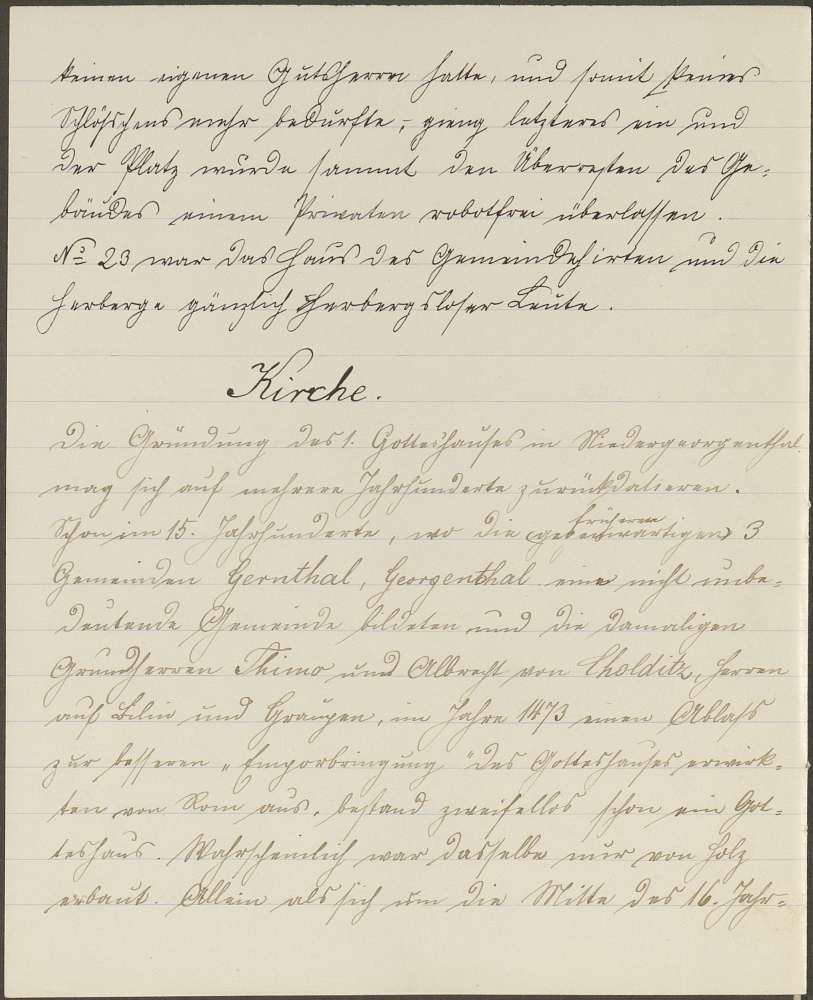 keinen eigenen Gutsherrn hatte, und somit keines
Schlößchens mehr bedurfte, gieng letzteres ein und
der Platz wurde sammt den Überresten des Ge-
bäudes einem Privaten robotfrei überlassen.
No 23 war das Haus des Gemeindehirten und die
Herberge gänzlich Herbergsloser Leute.
Kirche.
Die Gründung des 1. Gotteshauses in Niedergeorgenthal
mag sich auf mehrere Jahrhunderte zurückdatieren.
früheren
Schon im 15. Jahrhunderte, wo die (gegenwärtigen) 3
Gemeinden Gernthal, Georgenthal eine nicht unbe-
deutende Gemeinde bildeten und die damaligen
Grundherren Thimo und Albrecht von Cholditz, Herren
auf Bilin und Graupen, im Jahre 1473 einen Ablaß
zur besseren „Emporbringung" des Gotteshauses erwirk-
ten von Rom aus, bestand zweifellos schon ein Got-
teshaus. Wahrscheinlich war dasselbe nur von Holz
erbaut. Allein als sich um die Mitte des 16. Jahr-